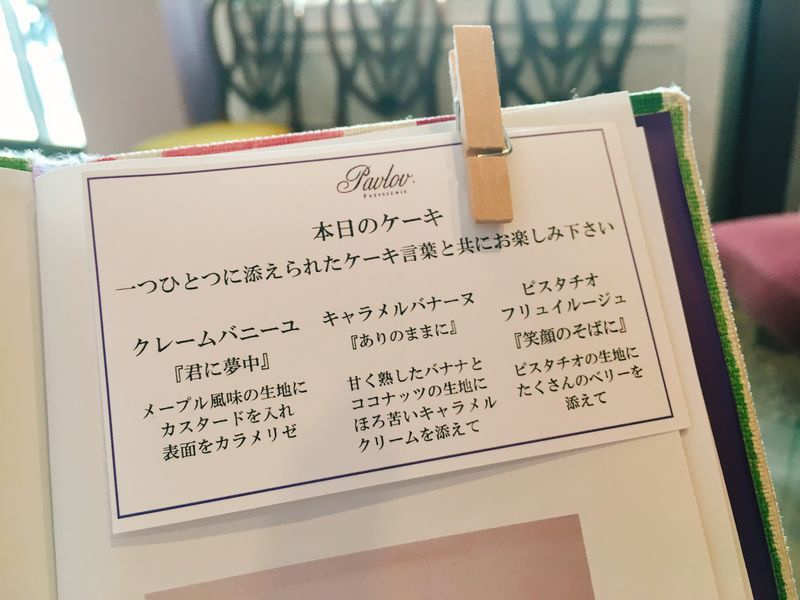 Pavlov.
PATISSERIE
本日のケーキ
一つひとつに添えられたケーキ言葉と共にお楽しみ下さい
クレームバニーユ
『君に夢中』
メープル風味の生地に
カスタードを入れ
表面をカラメリゼ
キャラメルバナーヌ
『ありのままに』
甘く熟したバナナと
ココナッツの生地に
ほろ苦いキャラメル
クリームを添えて
ピスタチオ
フリュイルージュ
『笑顔のそばに』
ピスタチオの生地に
たくさんのベリーを
添えて